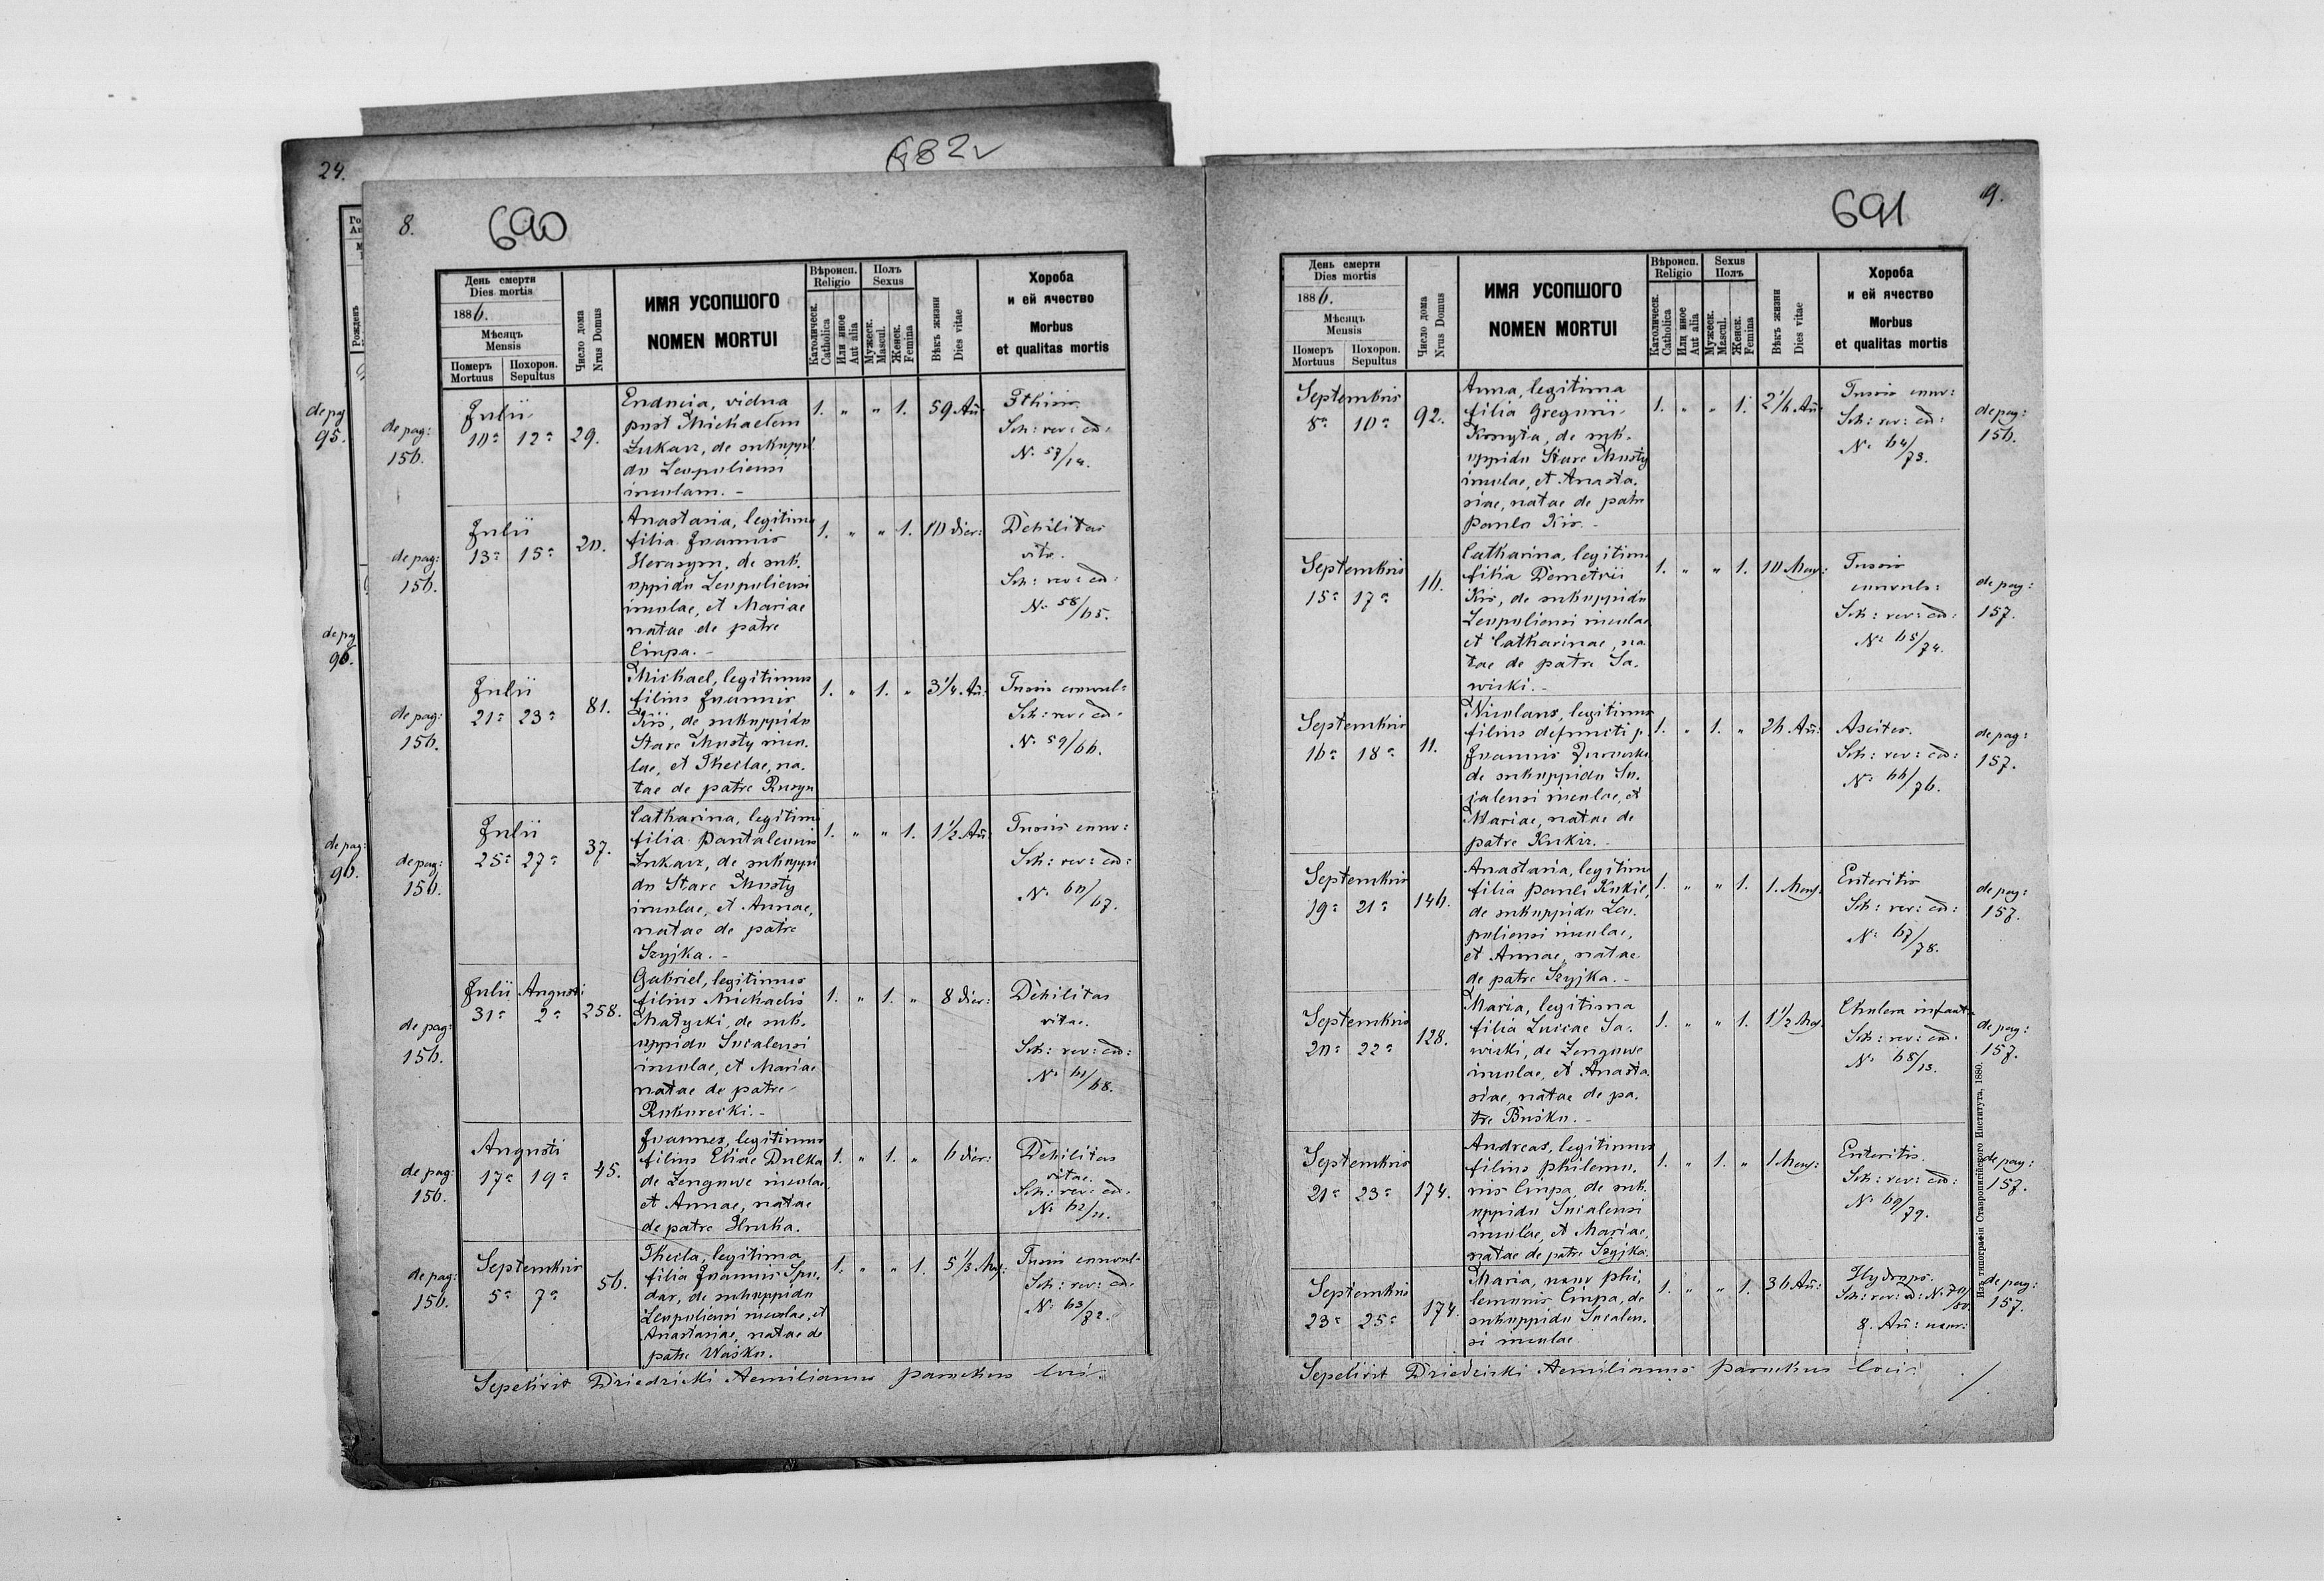 24.
682v
de pag
95.
de pag
96.
de pag:
96.
8.
690
День смерти
Dies mortis
1886.
Мѣсяцъ
Mensis
Померъ
Mortuus
Похорон.
Sepultus
Число дома
Nrus Domus
ИМЯ УСОПШОГО
NOMEN MORTUI
Вѣроисп.
Religio
Католическ.
Catholica
Или иное
Aut alia
Полъ
Sexus
Мужеск.
Mascul.
Женск.
Femina
Вѣкъ жизни
Dies vitae
Хороба
и ей ячество
Morbus
et qualitas mortis
de pag:
156.
Julii
10a 12a 29.
vidua
post Michaelem
Łukasz, de suburbi
do Leopoliensi
incolam. -
1. " " 1. 59 An:
Sch: rev: ed:
No 57/14.
de pag:
156.
Julii
13a 15a 20.
Anastasia, legitima
filia Joannis
Herasym, de sub.
oppido Leopoliensi
incolae, et Mariae
natae de patre
Ciupa. -
1. " " 1. 10 dier:
Debilitas
vitae.
Sch: rev: ed:
No 58/65.
de pag:
156.
Julii
21a 23a 81.
Michael, legitimus
filius Joannis
Kis, de suboppido
Stare Miasty inco.
lae, et Theclae, na.
tae de patre Rusyn
1. " 1. " 3 1/4. An:
Tussis convul:
Sch: rev: ed:
No 59/66.
de pag:
156.
Julii
25a 27a 37.
Catharina, legitima
filia Pantaleonis
Łukasz, de suboppi
do Stare Miasty
incolae, et Annae,
natae de patre
Szyjka. -
1. " " 1. 1 1/2 An:
Tussis conv:
Sch: rev: ed:
No 60/67.
de pag:
156.
Julii Augusti
31a 2a 258.
Gabriel, legitimus
filius Michaelis
Matyski, de sub.
oppido Sucalensi
incolae, et Mariae
natae de patre
1. " 1. " 8 dier:
Debilitas
vitae.
Sch: rev: ed:
No 61/68.
de pag:
156.
Augusti
17a 19a 45.
Joannes, legitimus
filius Eliae Dulka
de Zenguwe incolae,
et Annae, natae
de patre Hnuka.
1. " 1. " 6 dier:
Debilitas
vitae.
Sch: rev: ed.
No 62/11.
de pag:
156.
Septembris
5a 7a 56.
Thecla, legitima
filia Joannis Spo.
dar, de suboppido
Leopoliensi incolae, et
Anastasiae, natae de
patre Waśko.
1. " " 1. 5 1/3 Mes:
Tussis convul.
Sch: rev: ed.
No 63/72.
Sepelivit Dziedzicki Aemilianus parochus loci.
691
9.
День смерти
Dies mortis
1886.
Мѣсяцъ
Mensis
Померъ
Mortuus
Похорон.
Sepultus
Число дома
Nrus Domus
ИМЯ УСОПШОГО
NOMEN MORTUI
Вѣроисп.
Religio
Католическ.
Catholica
Или иное
Aut alia
Sexus
Полъ
Мужеск.
Mascul.
Женск.
Femina
Вѣкъ жизни
Dies vitae
Хороба
и ей ячество
Morbus
et qualitas mortis
Septembris
8a 10a 92.
Anna, legitima
filia Gregorii
Konyta, de sub.
oppido Stare Miasty
incolae, et Anasta.
siae, natae de patre
Paulo Kis. -
1. " " 1. 2 1/2 An:
Tussis conv:
Sch: rev: ed:
No 64/73.
de pag:
156.
Septembris
15a 17a 16.
Catharina, legitima
filia Demetrii
Kis, de suboppido
Leopoliensi incolae
et Catharinae, na.
tae de patre Sa.
wicki. -
1. " " 1. 10 Mens:
Tussis
convuls:
Sch: rev: ed:
No 65/74.
de pag:
157.
Septembris
16a 18a 11.
Nicolaus, legitimus
filius defuncti p.
de suboppido Su.
calensi incolae, et
Mariae, natae de
patre Kukiz. -
1. " 1. " 26 An:
Ascites.
Sch: rev: ed:
No 66/76.
de pag:
157.
Septembris
19a 21a 146.
Anastasia, legitima
filia Pauli Kukiz,
de suboppido Leo.
poliensi incolae,
et Annae, natae
de patre Szyjka. -
1. " " 1. 1. Mens.
Enteritis
Sch: rev: ed:
No 67/78.
de pag:
157.
Septembris
20a 22a 128.
Maria, legitima
filia Lucae Sa.
wicki, de Zenguwe
incolae, et Anasta.
siae, natae de pa.
tre Busko. -
1. " " 1. 1 1/2 Mes.
Cholera infant.
Sch: rev: ed.
No 68/13.
de pag:
157.
Septembris
21a 23a 174.
Andreas, legitimus
filius Philemo.
nis Ciupa, de sub.
oppido Sucalensi
incolae, et Mariae,
natae de patre Szyjka.
1. " 1. " 1 Mens:
Enteritis.
Sch: rev: ed:
No 69/79.
de pag:
157.
Septembris
23a 25a 174.
Maria, uxor Phi.
lemonis Ciupa, de
suboppido Sucalen.
si incolae.
1. " " 1. 36 An:
Hydrops.
Sch: rev: ed: No 70/80.
8. An: uxor:
de pag:
157.
Изъ типографіи Ставропигійского Института, 1880.
Sepelivit Dziedzicki Aemilianus parochus loci.